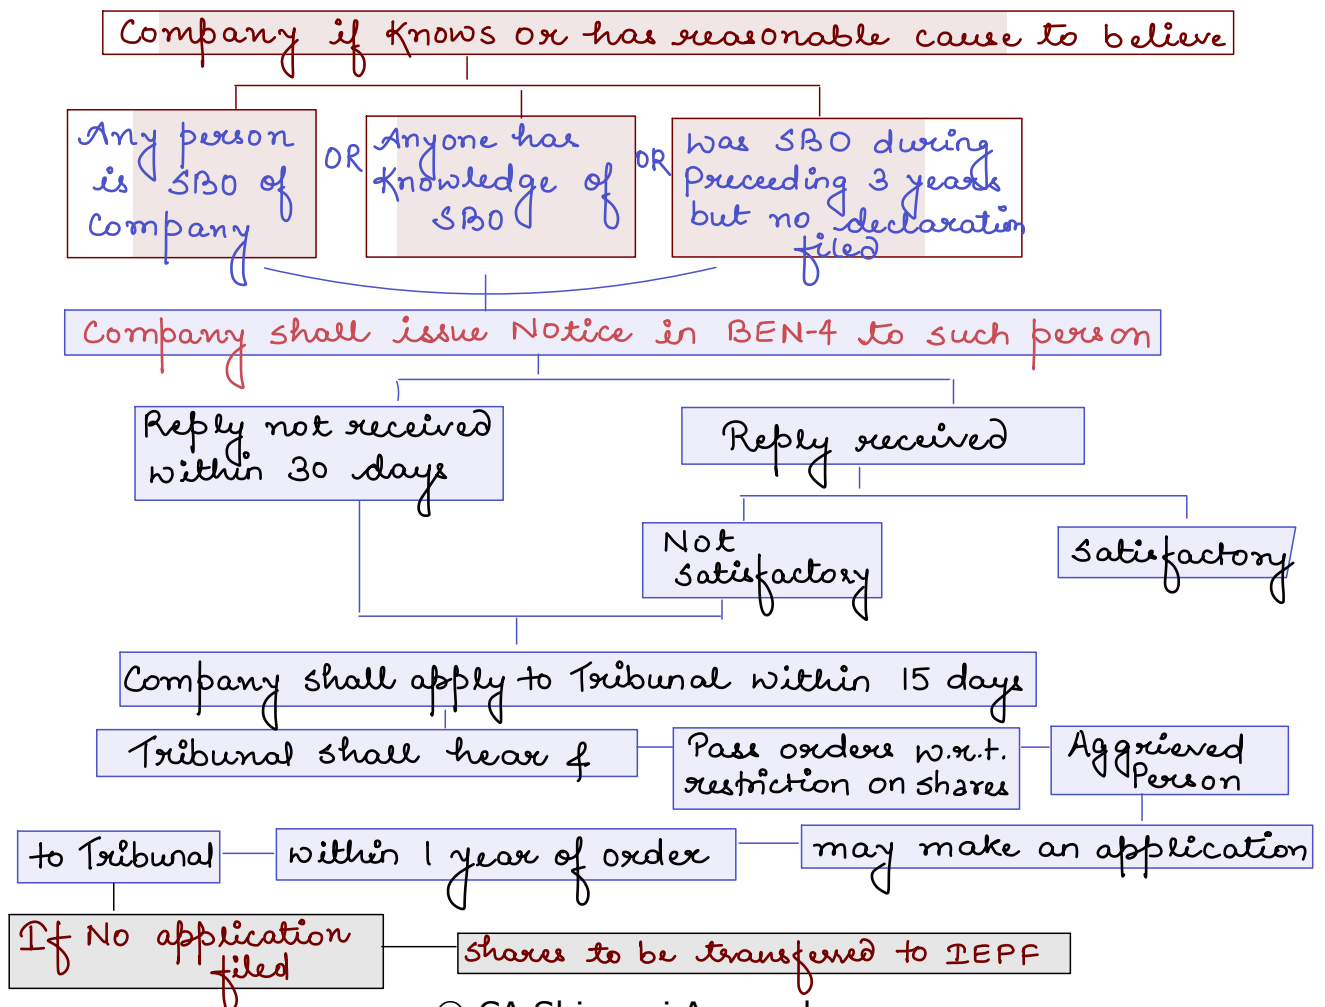 Company if knows or has reasonable cause to believe
Any person
is SBO of
Company
OR
Anyone has
knowledge of
SBO
OR
was SBO during
preceeding 3 years
but no declaration
filed
Company shall issue Notice in BEN-4 to such person
Reply not received
within 30 days
Reply received
Not
satisfactory
satisfactory
Company shall apply to Tribunal within 15 days
Tribunal shall hear &
Pass orders w.r.t.
restriction on shares
Aggrieved
Person
may make an application
within 1 year of order
to Tribunal
If No application
filed
shares to be transferred to IEPF